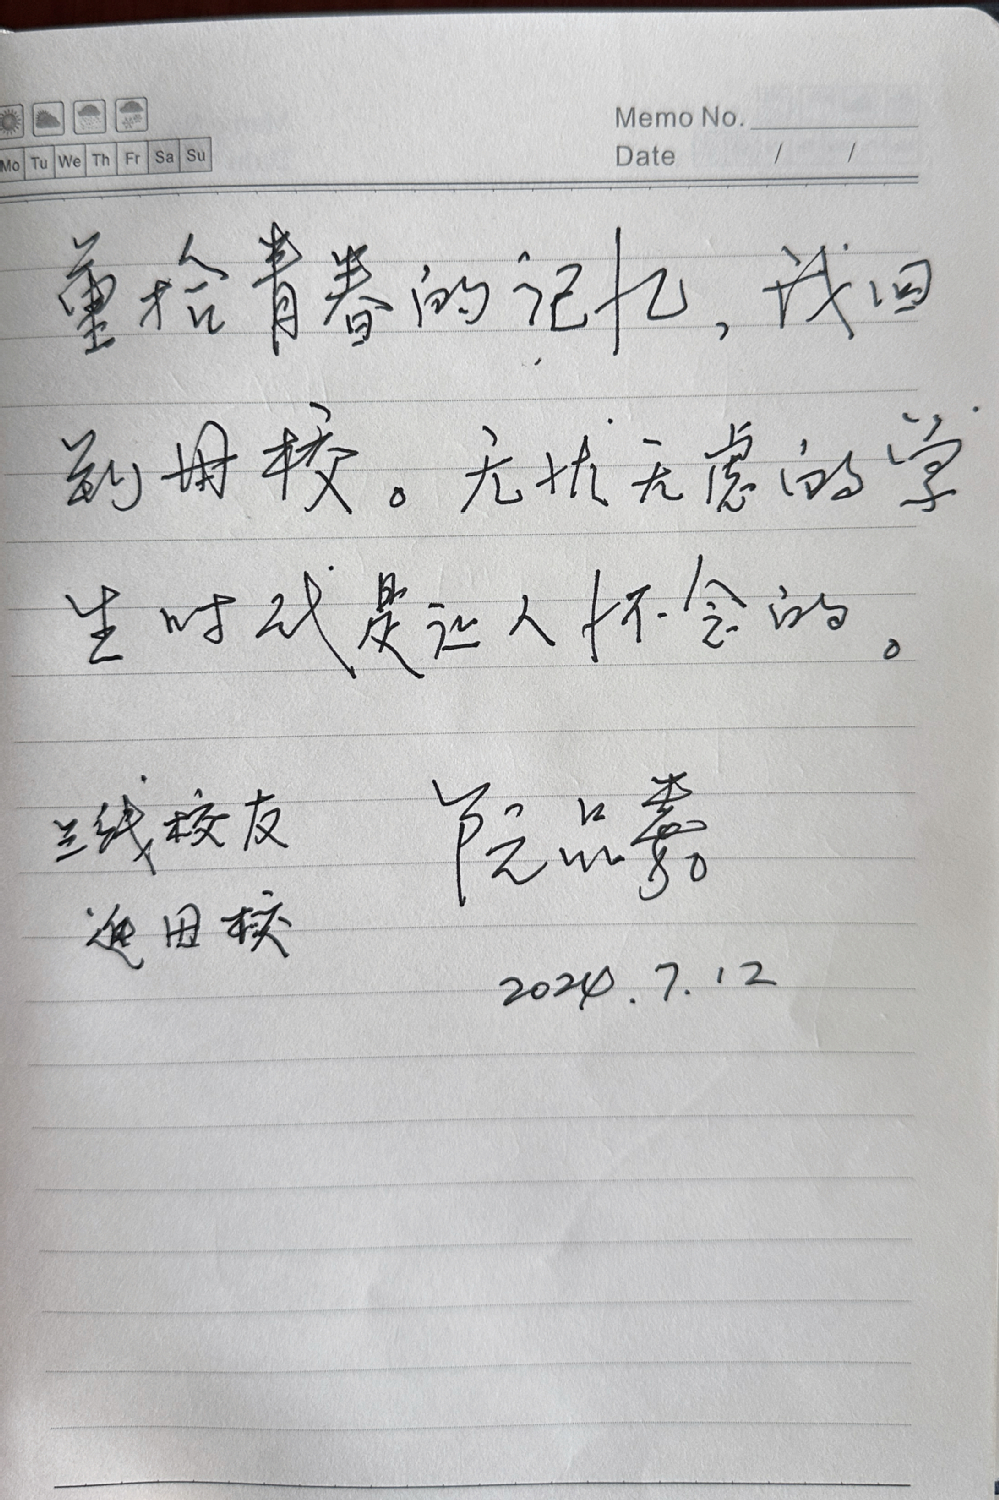 Memo No.
Mo Tu We Th Fr Sa Su
Date / /
重拾青春的记忆，我回
到母校。无忧无虑的学
生时代是让人怀念的。
线校友
品嘉
母校
2024.7.12